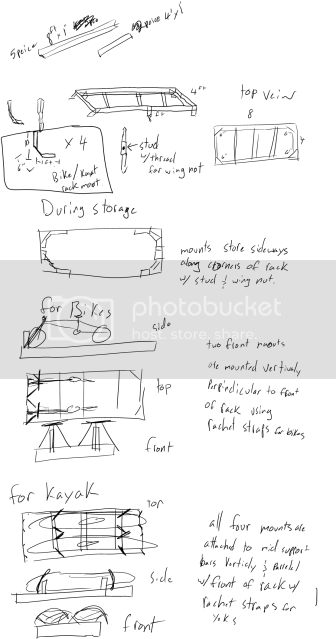 5 peice 8ft x 1
peice 4' x 1
4 ft
8 ft
top veiw
8
4
X 4
6"
Bike/Kayak
rack mount
stud
w/thread
for wing not
During storage
mounts store sideways
along corners of rack
w/ stud & wing nut.
for Bikes
side
two front mounts
are mounted verticly
Perpindicular to front
of rack using
rachet straps for bikes
top
front
for kayak
top
all four mounts are
attached to mid support
bars verticly & parrelel
w/ front of rack w/
rachet straps for
yaks
side
front
photobucket
host. store. share.